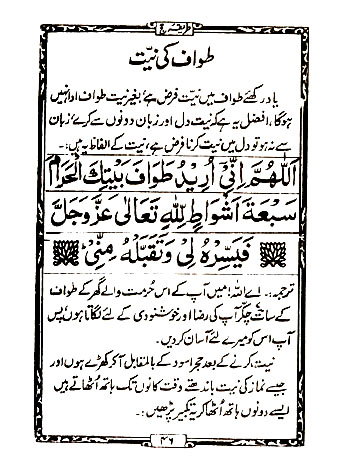 طریقہ حج
طواف کی نیت
یاد رکھئے طواف میں نیت فرض ہے، بغیر نیت طواف ادا نہیں
ہوگا، افضل یہ ہے کہ نیت دل اور زبان دونوں سے کرے، زبان
سے نہ ہو تو دل میں نیت کرنا فرض ہے، نیت کے الفاظ یہ ہیں:۔
اَللّٰهُمَّ اِنِّیْ اُرِیْدُ طَوَافَ بَیْتِكَ الْحَرَامِ
سَبْعَةَ اَشْوَاطٍ لِلّٰهِ تَعَالٰی عَزَّ وَجَلَّ
فَیَسِّرْهُ لِیْ وَتَقَبَّلْهُ مِنِّیْ
ترجمہ:۔ اے اللہ! میں آپ کے اس حرمت والے گھر کے طواف
کے سات چکر آپ کی رضا اور خوشنودی کے لئے لگاتا ہوں، پس
آپ اس کو میرے لئے آسان کر دیں۔
نیت کرنے کے بعد حجر اسود کے بالمقابل آکر کھڑے ہوں اور
جیسے نماز کی نیت باندھتے وقت کانوں تک ہاتھ اُٹھاتے ہیں
ایسے دونوں ہاتھ اُٹھا کر یہ تکبیر پڑھیں:۔
۴۶